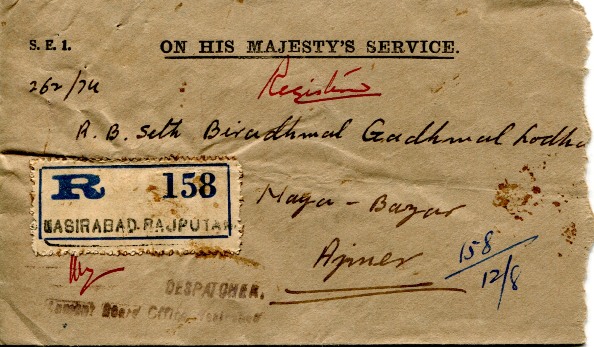 S. E. 1.
ON HIS MAJESTY'S SERVICE.
262/74
Registered
R. B. Seth Biradhmal Gadhmal Lodha
R 158
NASIRABAD-RAJPUTAN
Naya - Bazar
Ajmer
158
12/8
DESPATCHER,
Cantont Board Office, Nasirabad